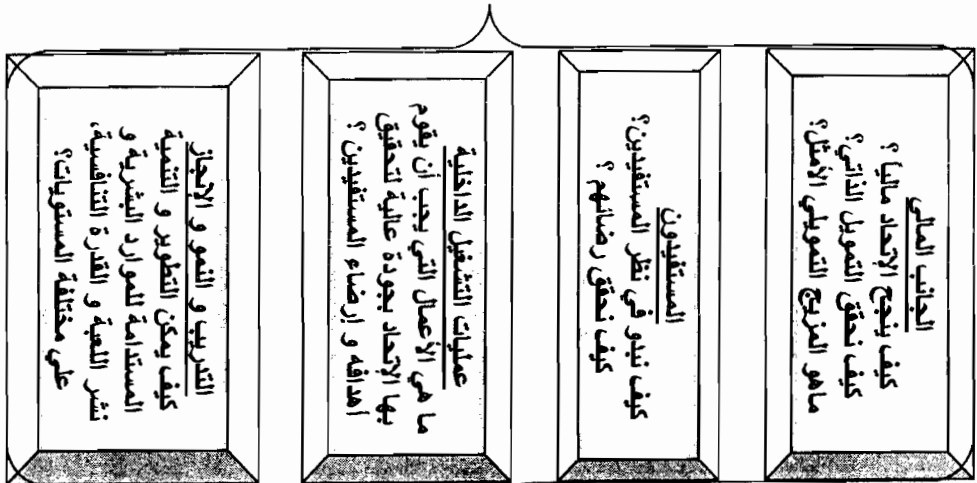 الجانب المالي
كيف ينجح الإتحاد مالياً ؟
كيف نحقق التمويل الذاتي؟
ماهو المزيج التمويلي الأمثل؟
المستفيدون
كيف نبدو في نظر المستفيدين؟
كيف نحقق رضائهم ؟
عمليات التشغيل الداخلية
ما هي الأعمال التي يجب أن يقوم
بها الإتحاد بجودة عالية لتحقيق
أهدافه و إرضاء المستفيدين ؟
التدريب و النمو و الإنجاز
كيف يمكن التطوير و التنمية
المستدامة للموارد البشرية و
نشر اللعبة و القدرة التنافسية،
علي مختلفة المستويات؟